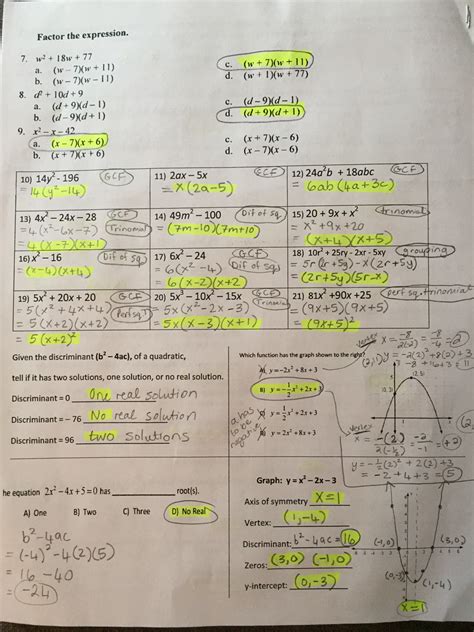 Factor the expression.
7. w² + 18w + 77
a. (w – 7)(w + 11)
b. (w – 7)(w – 11)
c. (w + 7)(w + 11)
d. (w + 1)(w + 77)
8. d² + 10d + 9
a. (d + 9)(d – 1)
b. (d – 9)(d + 1)
c. (d – 9)(d – 1)
d. (d + 9)(d + 1)
9. x² – x – 42
a. (x – 7)(x + 6)
b. (x + 7)(x + 6)
c. (x + 7)(x – 6)
d. (x – 7)(x – 6)
10) 14y² - 196 GCF
= 14(y² - 14)
11) 2ax – 5x GCF
= x(2a-5)
12) 24a²b + 18abc GCF
= 6ab(4a+3c)
13) 4x² – 24x – 28 GCF
= 4(x²-6x-7) Trinomial
= 4(x-7)(x+1)
14) 49m² – 100 Dif of sq.
= (7m-10)(7m+10)
15) 20 + 9x + x² trinomial
= x² + 9x + 20
= (x+4)(x+5)
16) x² – 16 Dif of Sq.
= (x-4)(x+4)
17) 6x² – 24 GCF
= 6(x²-4) Dif of Sq.
= 6(x-2)(x+2)
18) 10r² + 25ry - 2xr - 5xy grouping
= 5r(2r+5y) - x(2r+5y)
= (2r+5y)(5r-x)
19) 5x² + 20x + 20 GCF
= 5(x²+4x+4)
= 5(x+2)(x+2) Perf sq.
= 5(x+2)²
20) 5x³ – 10x² – 15x GCF
= 5x(x²-2x-3) Trinomial
= 5x(x-3)(x+1)
21) 81x² + 90x + 25 Perf sq. trinomial
= (9x+5)(9x+5)
= (9x+5)²
Given the discriminant (b² – 4ac), of a quadratic,
tell if it has two solutions, one solution, or no real solution.
Discriminant = 0 One real solution
Discriminant = – 76 No real solution
Discriminant = 96 two solutions
Which function has the graph shown to the right?
A) y = –2x² + 8x + 3
B) y = –½x² + 2x + 3
y = ½x² + 2x + 3
y = 2x² + 8x + 3
a has to be negative
vertex x = -8/2(-2) = -8/-4 = 2
y = -2(2)² + 8(2) + 3
-8 + 16 + 3 = 11
vertex
x = -(2)/2(-½) = -2/-1 = +2
y = -½(2)² + 2(2) + 3
= -2 + 4 + 3 = 5
he equation 2x² – 4x + 5 = 0 has root(s).
A) One B) Two C) Three D) No Real
b²-4ac
= (-4)² - 4(2)(5)
= 16 - 40
= -24
Graph: y = x² – 2x – 3
Axis of symmetry x=1
Vertex: (1,-4)
Discriminant: b²-4ac = 16
Zeros: (3,0) (-1,0)
y-intercept: (0,-3)
(-1,0)
(3,0)
(0,-3)
(1,-4)
x=1